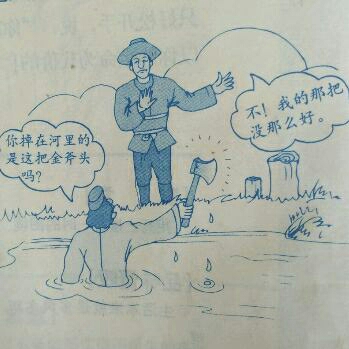 你掉在河里的
是这把金斧头
吗?
不! 我的那把
没那么好。